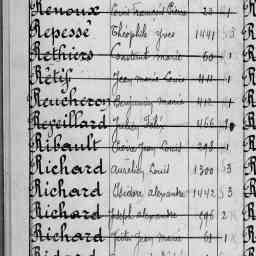 Renoux Louis François Pierre 23 1
Repessé Théophile Yves 1441 3
Rethiers Constant Marie 60 1
Rétif Jean Marie Louis 411 1
Reucheron Benjamin Marie 412 1
Reveillard Jules 466
Ribault Pierre Jean Louis 298 1
Richard Aurélien Louis 1300 3
Richard Isidore Alexandre 1442 3
Richard Joseph Alexandre 696 2
Richard Jean Marie 61 1